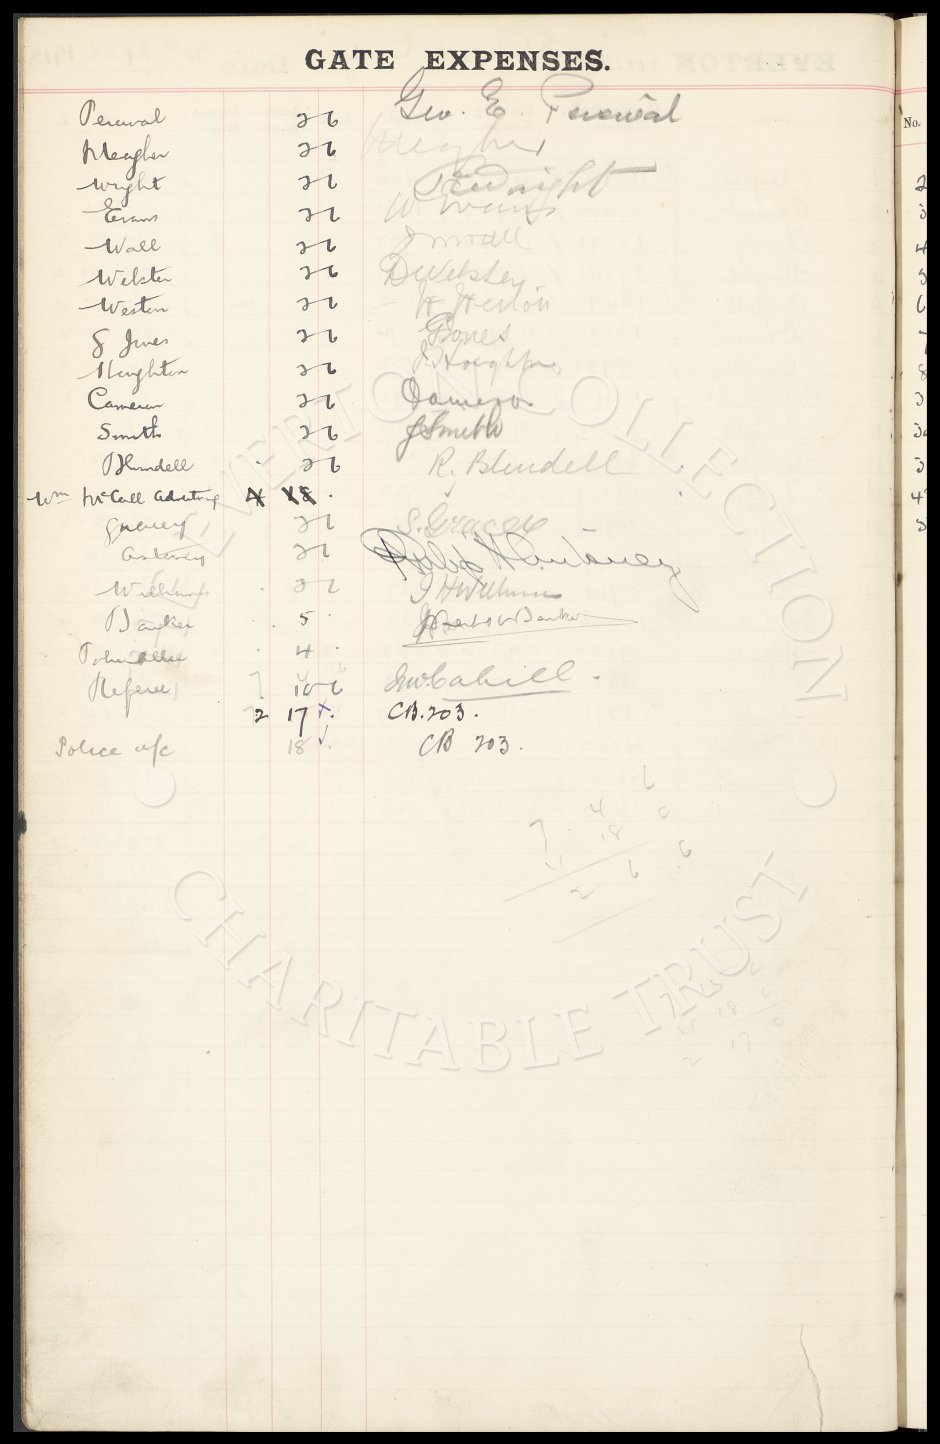 GATE EXPENSES.
No.
Percival 2 6 Geo. E. Percival
Meagher 2 6 Meagher
Wright 2 6 Wright
Evans 2 6 W Evans
Wall 2 6 J Wall
Webster 2 6 D Webster
Weston 2 6 H Weston
G Jones 2 6 G Jones
Houghton 2 6 J Houghton
Cameron 2 6 D Cameron
Smith 2 6 J Smith
Blundell 2 6 R. Blundell
Wm McCall Advertising 4 18
Gracey 2 6 S. Gracey
2 6 Philip
Williams 2 6 J H Williams
5
4
Referee 10 6 Cahill
2 17 CB. 203.
Police a/c 18 CB 203.
6
7 4
18 0
2 6 6
18
2 17
EVERTON COLLECTION
CHARITABLE TRUST